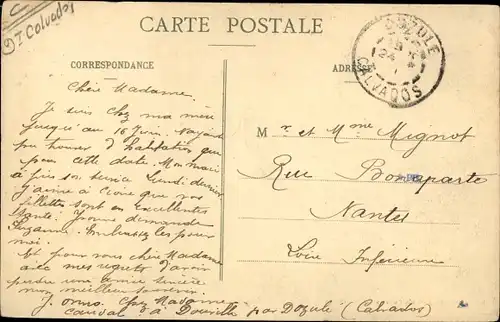 DT Calvados
CARTE POSTALE
CORRESPONDANCE
ADRESSE
DOZULÉ
24
CALVADOS
Chère Madame
Je suis chez ma mère
jusqu'au 16 Juin. N'ayant
pu trouver d'habitation que
pour cette date. Mon mari
a pris son service Lundi dernier
J'arrive à croire que vos
fillettes sont en excellentes
santé. J'vous demande
Suzanne. Embrassez les pour
moi.
Et pour vous chère Madame
avec mes regrets d'avoir
perdu une amie sincère
mon meilleur souvenir.
J. chez Madame
à Douville par Dozulé (Calvados)
Mr et Mme Mignot
Rue Bonaparte
Nantes
Loire Inférieure